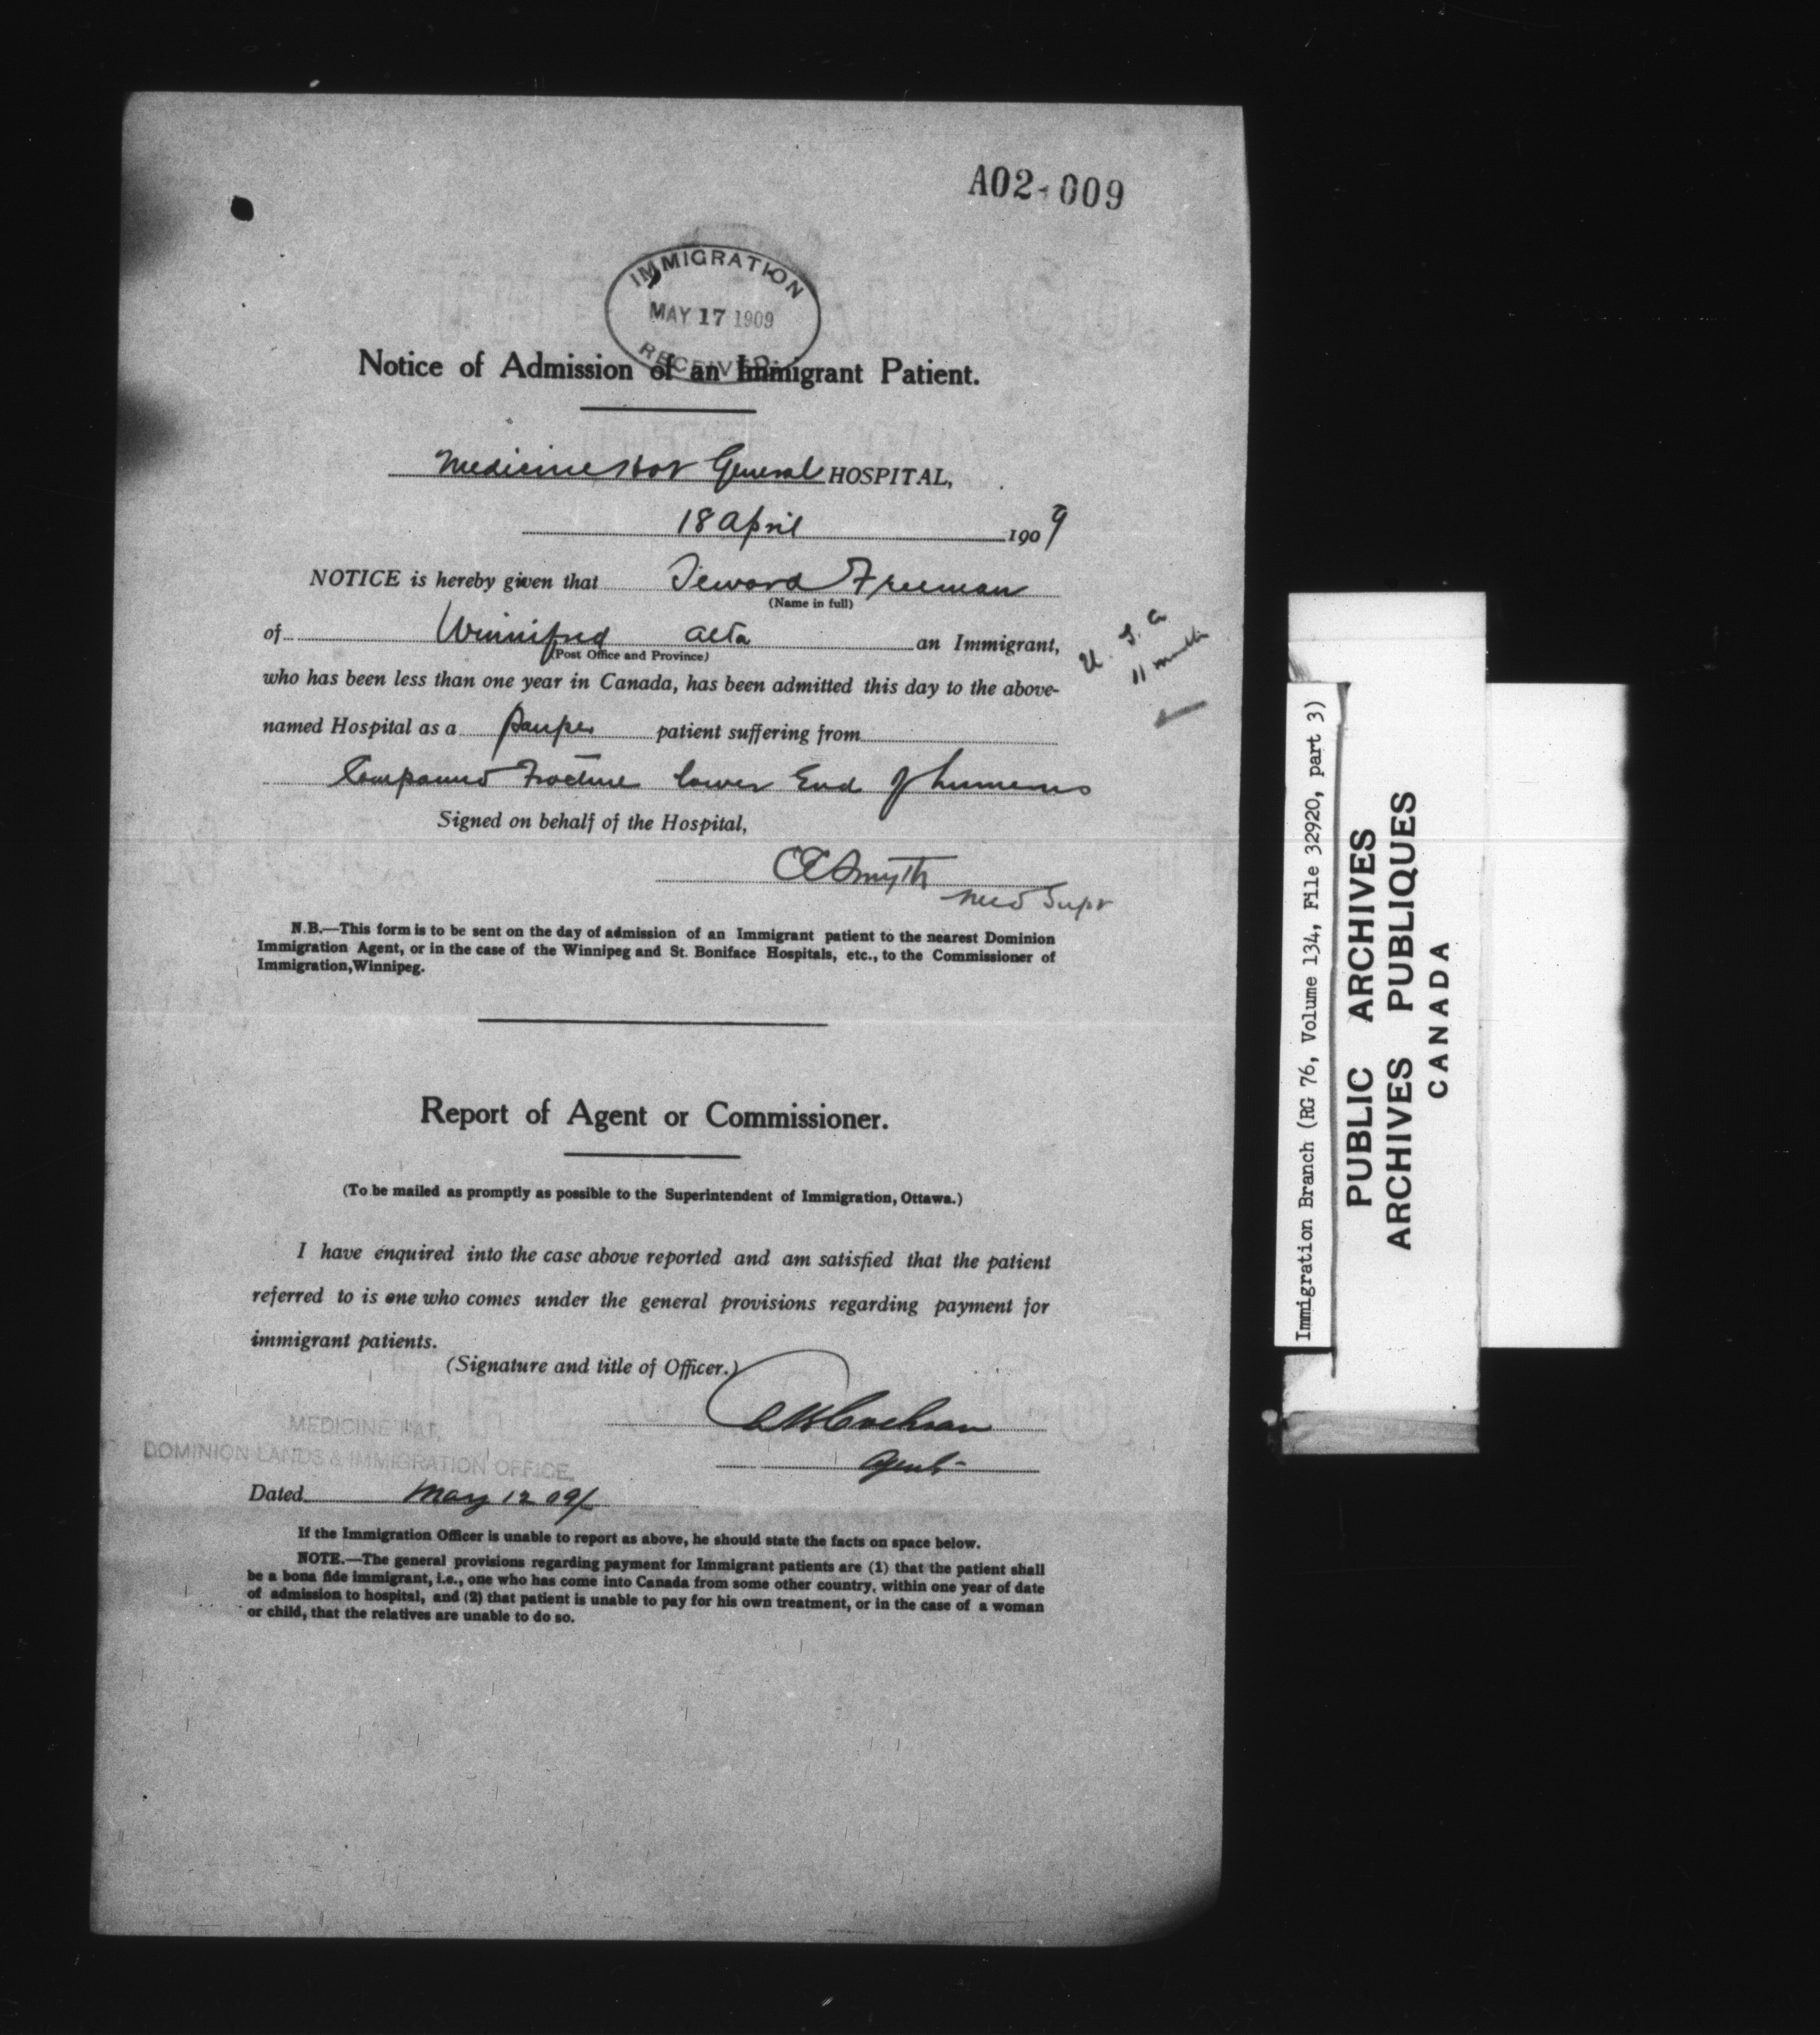 A02-009
IMMIGRATION
MAY 17 1909
RECEIVED
Notice of Admission of an Immigrant Patient.
Medicine Hat General HOSPITAL,
18 April 1909
NOTICE is hereby given that Seward Freeman
(Name in full)
of Winnifred Alta an Immigrant,
(Post Office and Province)
U. S. a
11 months
who has been less than one year in Canada, has been admitted this day to the above-
named Hospital as a pauper patient suffering from
Compound Fracture lower End of humerus
Signed on behalf of the Hospital,
Smyth
Med Supt
N.B.—This form is to be sent on the day of admission of an Immigrant patient to the nearest Dominion
Immigration Agent, or in the case of the Winnipeg and St. Boniface Hospitals, etc., to the Commissioner of
Immigration, Winnipeg.
Report of Agent or Commissioner.
(To be mailed as promptly as possible to the Superintendent of Immigration, Ottawa.)
I have enquired into the case above reported and am satisfied that the patient
referred to is one who comes under the general provisions regarding payment for
immigrant patients.
(Signature and title of Officer.)
Cochran
Agent
MEDICINE HAT,
DOMINION LANDS & IMMIGRATION OFFICE.
Dated May 12 09/
If the Immigration Officer is unable to report as above, he should state the facts on space below.
NOTE.—The general provisions regarding payment for Immigrant patients are (1) that the patient shall
be a bona fide immigrant, i.e., one who has come into Canada from some other country, within one year of date
of admission to hospital, and (2) that patient is unable to pay for his own treatment, or in the case of a woman
or child, that the relatives are unable to do so.
Immigration Branch (RG 76, Volume 134, File 32920, part 3)
PUBLIC ARCHIVES
ARCHIVES PUBLIQUES
CANADA